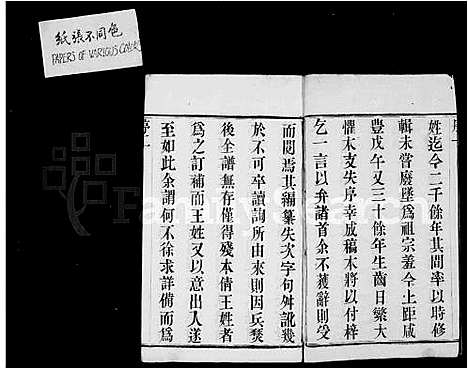 紙張不同色
PAPERS OF VARIOUS COLORS
序一
姓迄今二千餘年其間率以時修
輯未嘗廢墜為祖宗羞今上距咸
豐戊午又三十餘年生齒日繁大
懼末支失序幸成稿本將以付梓
乞一言以弁諸首余不獲辭則受
而閱焉其編纂失次字句舛訛幾
於不可卒讀詢所由來則因兵燹
後全譜無存僅得殘本倩王姓者
為之訂補而王姓又以意出入遂
至如此余謂何不徐求詳備而為
序二
FamilySearch